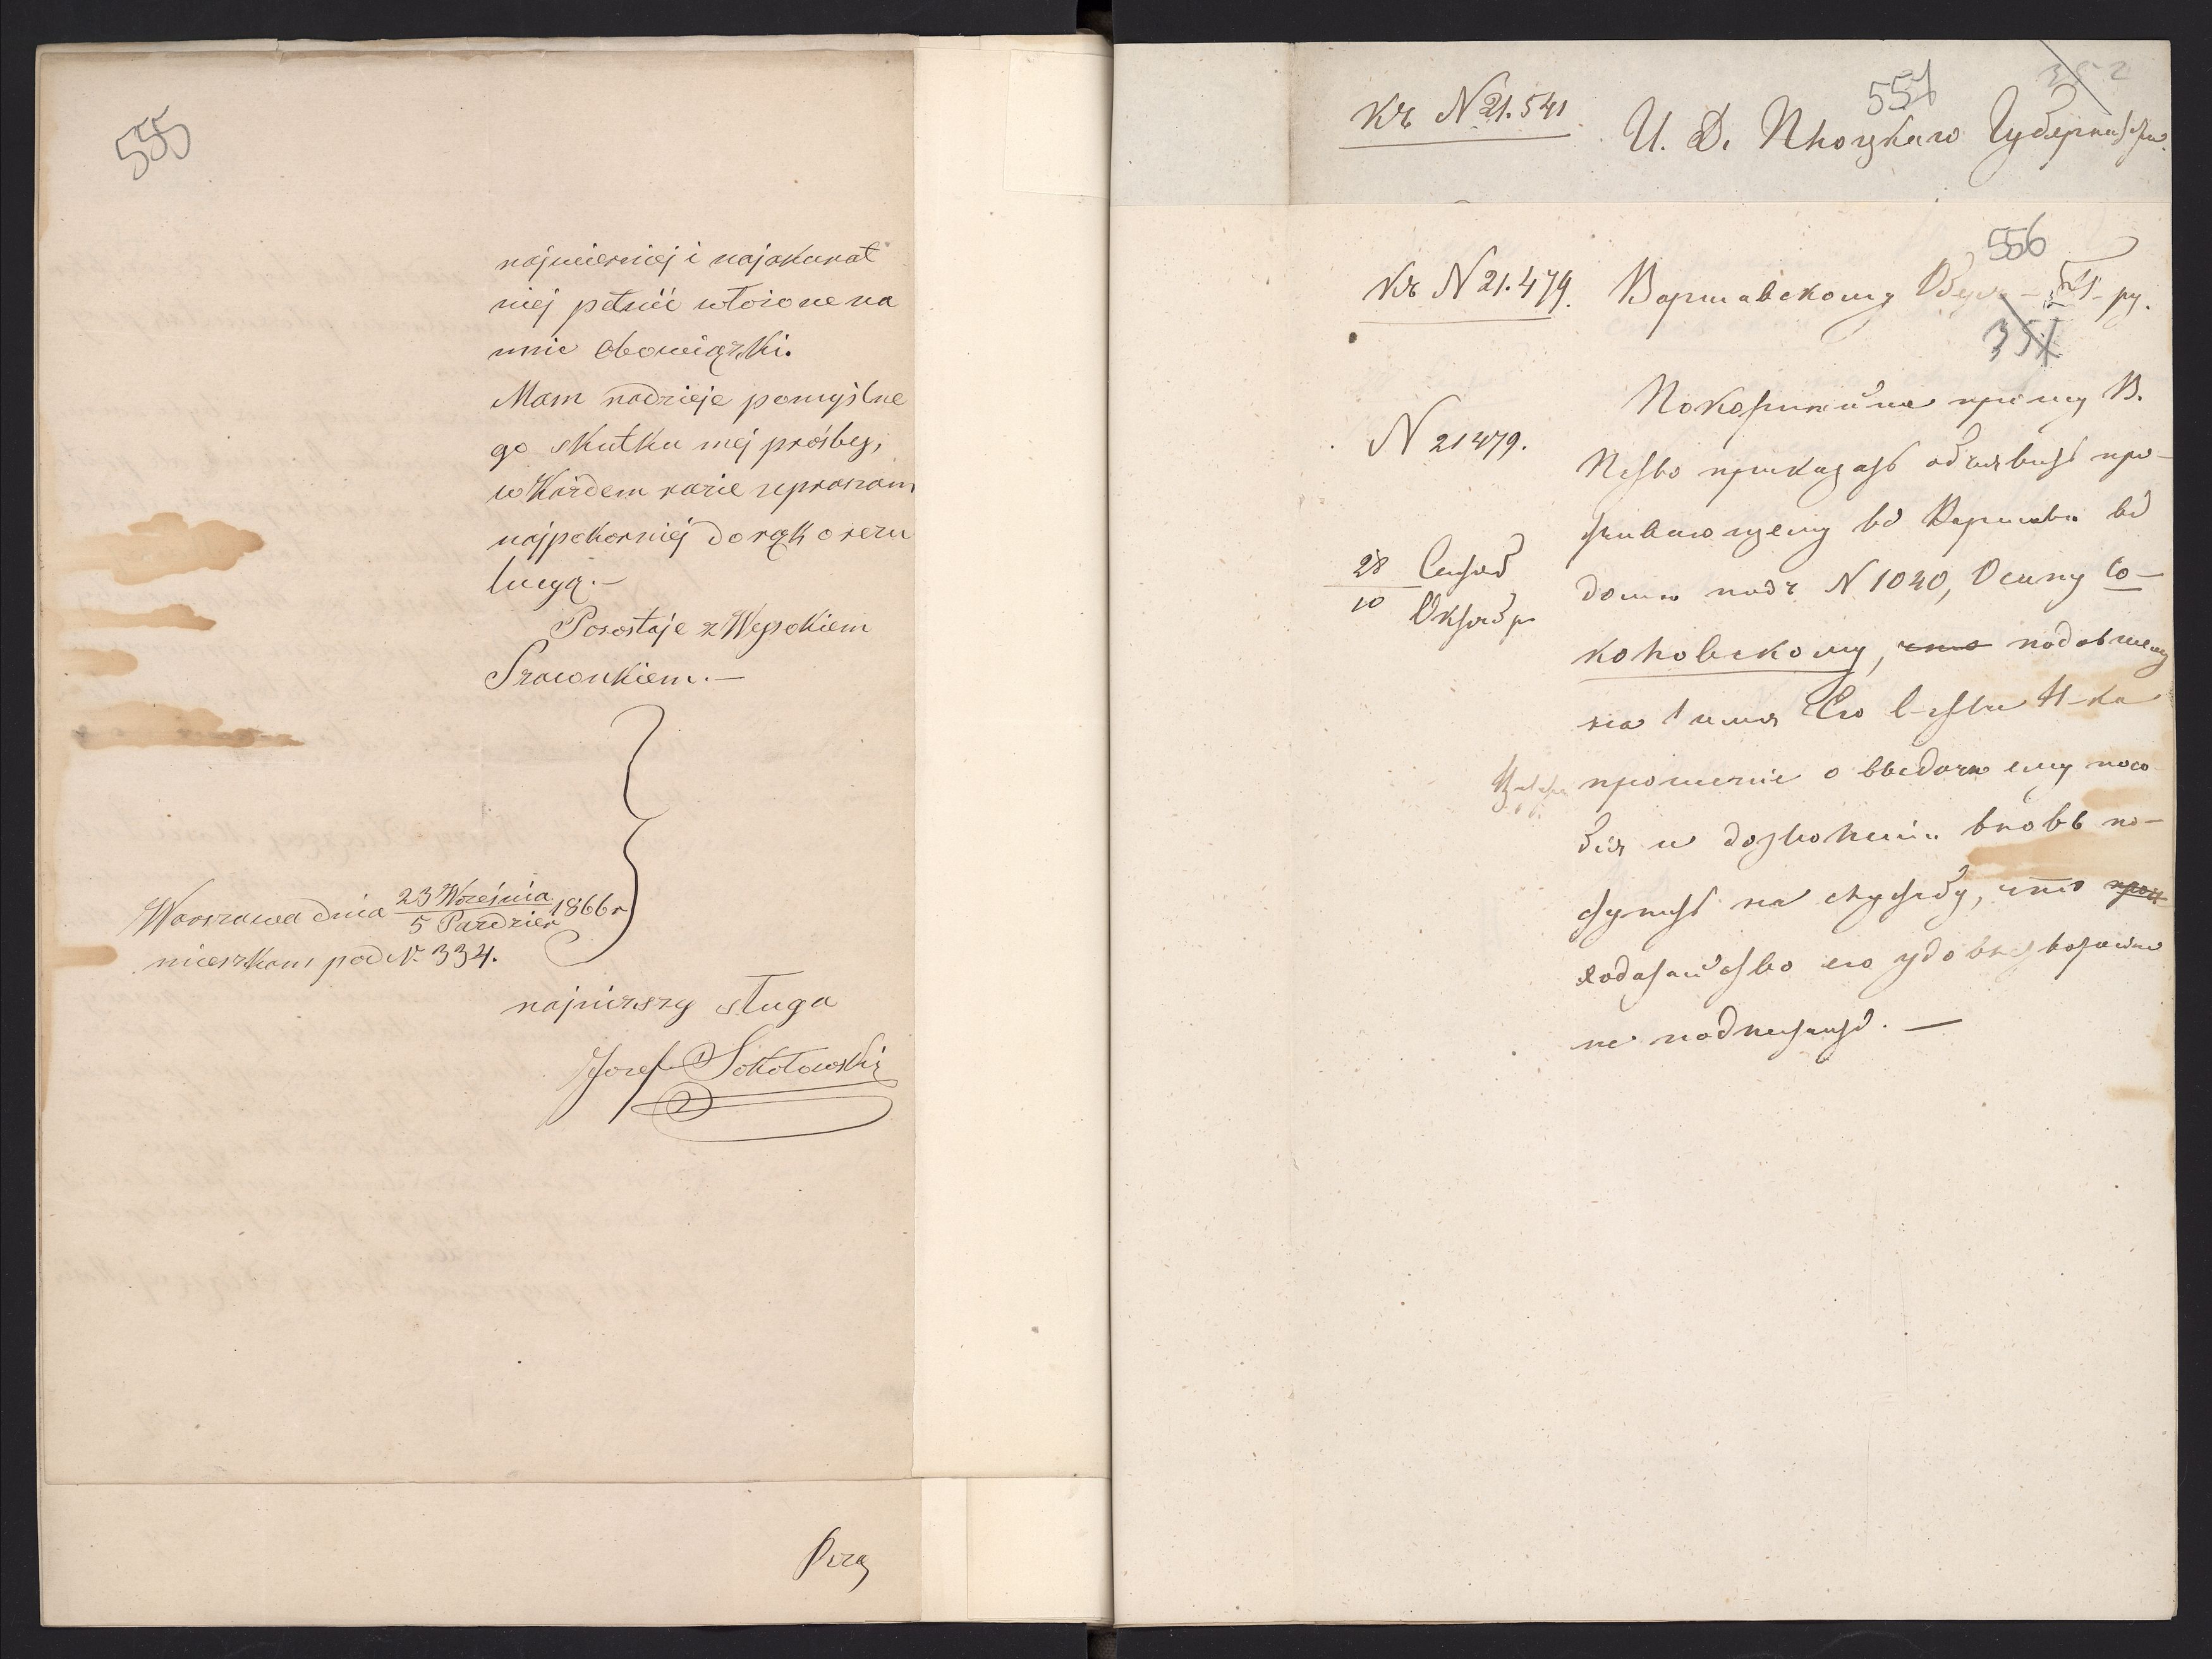 555
najwierniej i najakurat
niej pełnić włożone na
mnie obowiązki.
Mam nadzieje pomyślne
go skutku mej prośby,
w Każdem razie upraszam
najpokorniej do rąk o rezu
lucyą.—
Pozostaje z Wysokiem
Szacunkiem.—
Warszawa dnia 23 Września / 5 Paździer 1866 r
mieszkam pod Nr 334.
najniższy sługa
Józef Sokołowski
Къ N 21.541
И. Д. Плоцкаго Губернатора.
352
556
Къ N 21.479.
Варшавскому
351
N 21479.
28 Сентяб
10 Октября
Покорнѣйше прошу В.
П-ство приказать объявить про-
живающему въ Варшавѣ въ
домѣ подъ N 1020, Осипу Со-
коловскому, что подавшему
на имя Его С-ства Н-ка
прошеніе о выдачѣ ему посо
бія и дозволеніи вновь по-
ступить на службу, что
ходатайство его удовлетворенію
не подлежитъ. —